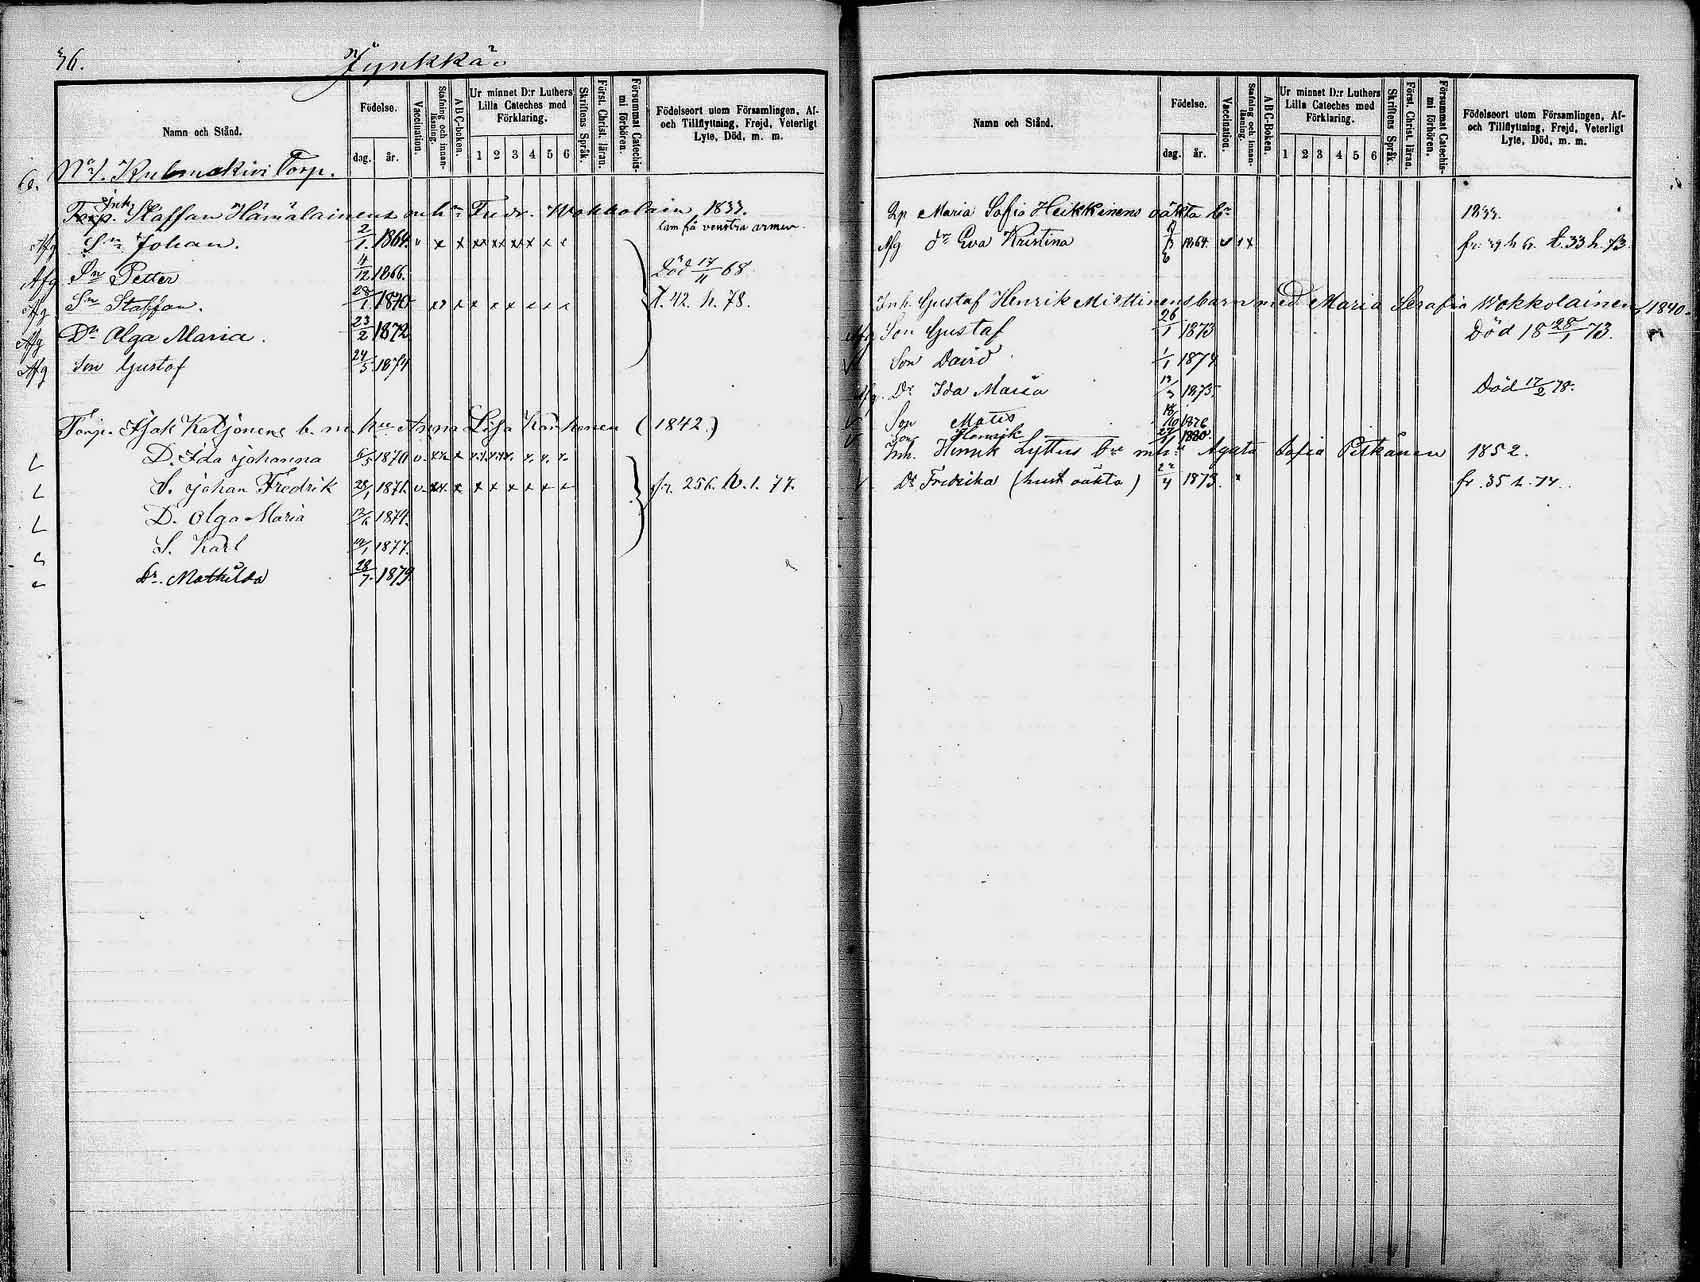 36. Jynkkä.
Namn och Stånd.
Födelse.
dag. år.
Vaccination.
Stafning och innan-läsning.
A B C-boken.
Ur minnet D:r Luthers Lilla Cateches med Förklaring.
1 2 3 4 5 6
Skriftens Språk.
Först. Christ. läran.
Försummat Catechis-mi förhören.
Födelseort utom Församlingen, Af- och Tillflyttning, Frejd, Veterligt Lyte, Död, m. m.
No 1. Torp.
Inh.
Torp. Staffan Hämäläinens Wokkolain 1833.
Afg Sn Johan. 2/1 1864. v x x xx xx xx x x x lam få venstra armen.
Afg Sn Petter 4/12 1866. Död 17/11 68
Afg Sn Staffan. 28/1 1870 t. 42. h. 78.
Afg Dr Olga Maria. 23/2 1872
Afg Son Gustaf 24/5 1874
Torp. Isak Katjonens b. m. hu Anna Lisa Karhonen (1842.)
D. Ida Johanna 6/5 1870 v.
S. Johan Fredrik 28/1 1871. v. x x x x x x x fr. 256. 1. 77.
D. Olga Maria 1874.
S. Karl 1877.
Dr. Mathilda 28/7. 1879.
Namn och Stånd.
Födelse.
dag. år.
Vaccination.
Stafning och innan-läsning.
A B C-Boken.
Ur minnet D:r Luthers Lilla Cateches med Förklaring.
1 2 3 4 5 6
Skriftens Språk.
Först. Christ. läran.
Försummat Catechis-mi förhören.
Födelseort utom Församlingen, Af- och Tillflyttning, Frejd, Veterligt Lyte, Död, m. m.
Maria Sofia Heikkinens oäkta 1833.
Afg Dr Eva Kristina 1864 t. 33 h. 73.
Inh. Gustaf Henrik Miettinens barn med Maria Serafia Wokkolainen 1840.
Son Gustaf 26/1 1873 Död 18 28/1 73.
Son David 1/1 1874
Dr Ida Maria 1875. Död 17/2 78.
Son Mats 18/10 1876
Son Henrik 27/1 1880.
Inh. Henrik Lyttus Agata Sofia Pitkänen 1852.
Dr Fredrika (hust oäkta) 22/4 1873. fr. 35 h. 74.